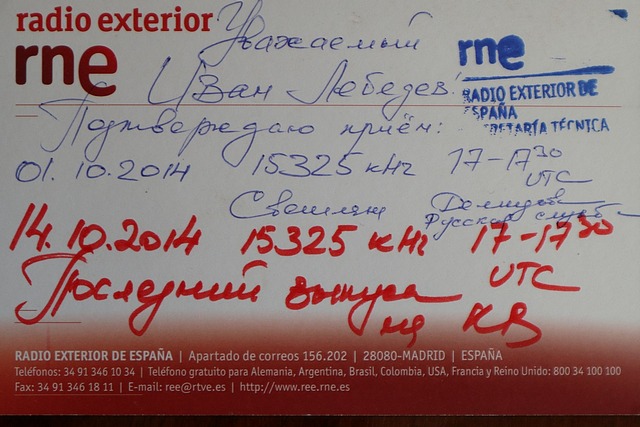 radio exterior
rne
Уважаемый
Иван Лебедев!
rne
RADIO EXTERIOR DE
ESPAÑA
SECRETARÍA TÉCNICA
Подтверждаю приём:
01.10.2014 15325 кHz 17-17³⁰
UTC
Русская служба
14.10.2014 15325 кHz 17-17³⁰
UTC
Последний выпуск
на КВ
RADIO EXTERIOR DE ESPAÑA | Apartado de correos 156.202 | 28080-MADRID | ESPAÑA
Teléfonos: 34 91 346 10 34 | Teléfono gratuito para Alemania, Argentina, Brasil, Colombia, USA, Francia y Reino Unido: 800 34 100 100
Fax: 34 91 346 18 11 | E-mail: ree@rtve.es | http://www.ree.rne.es